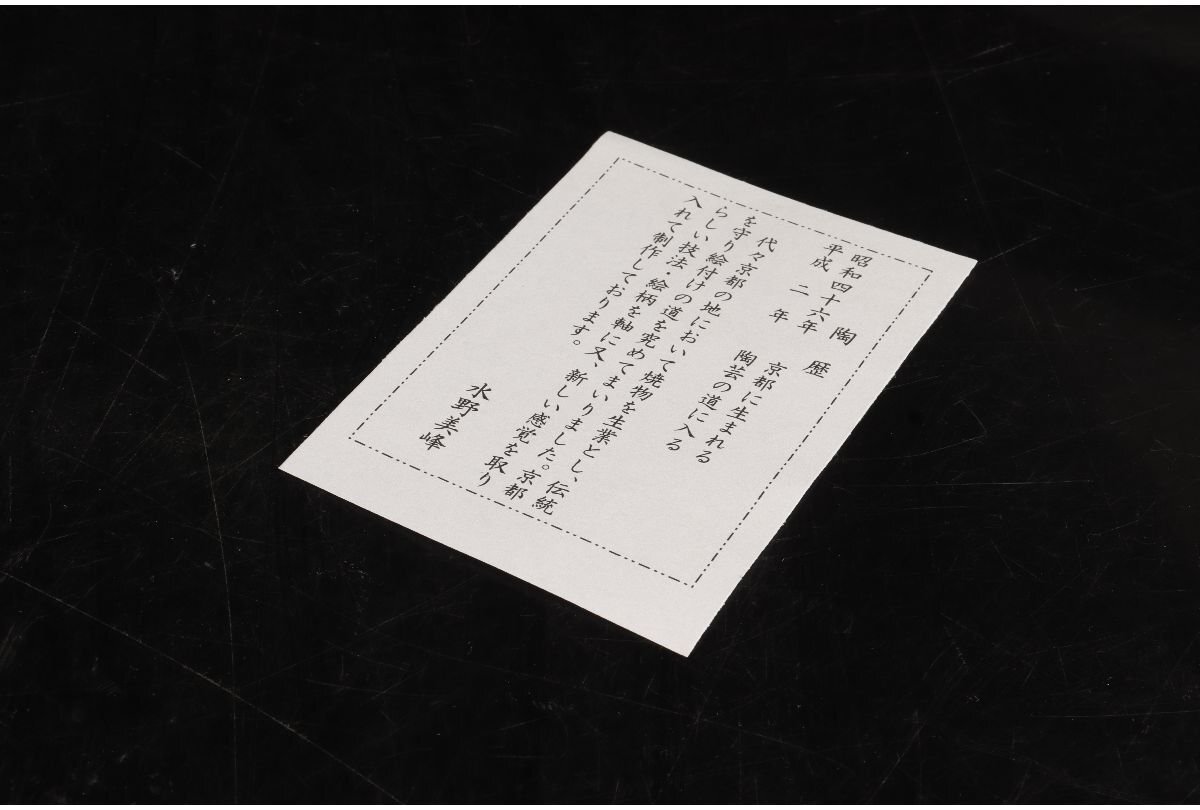 陶歴
昭和四十六年 京都に生まれる
平成二年 陶芸の道に入る
代々京都の地において焼物を生業とし、伝統
を守り絵付けの道を究めてまいりました。京都
らしい技法・絵柄を軸に又、新しい感覚を取り
入れて制作しております。
水野美峰